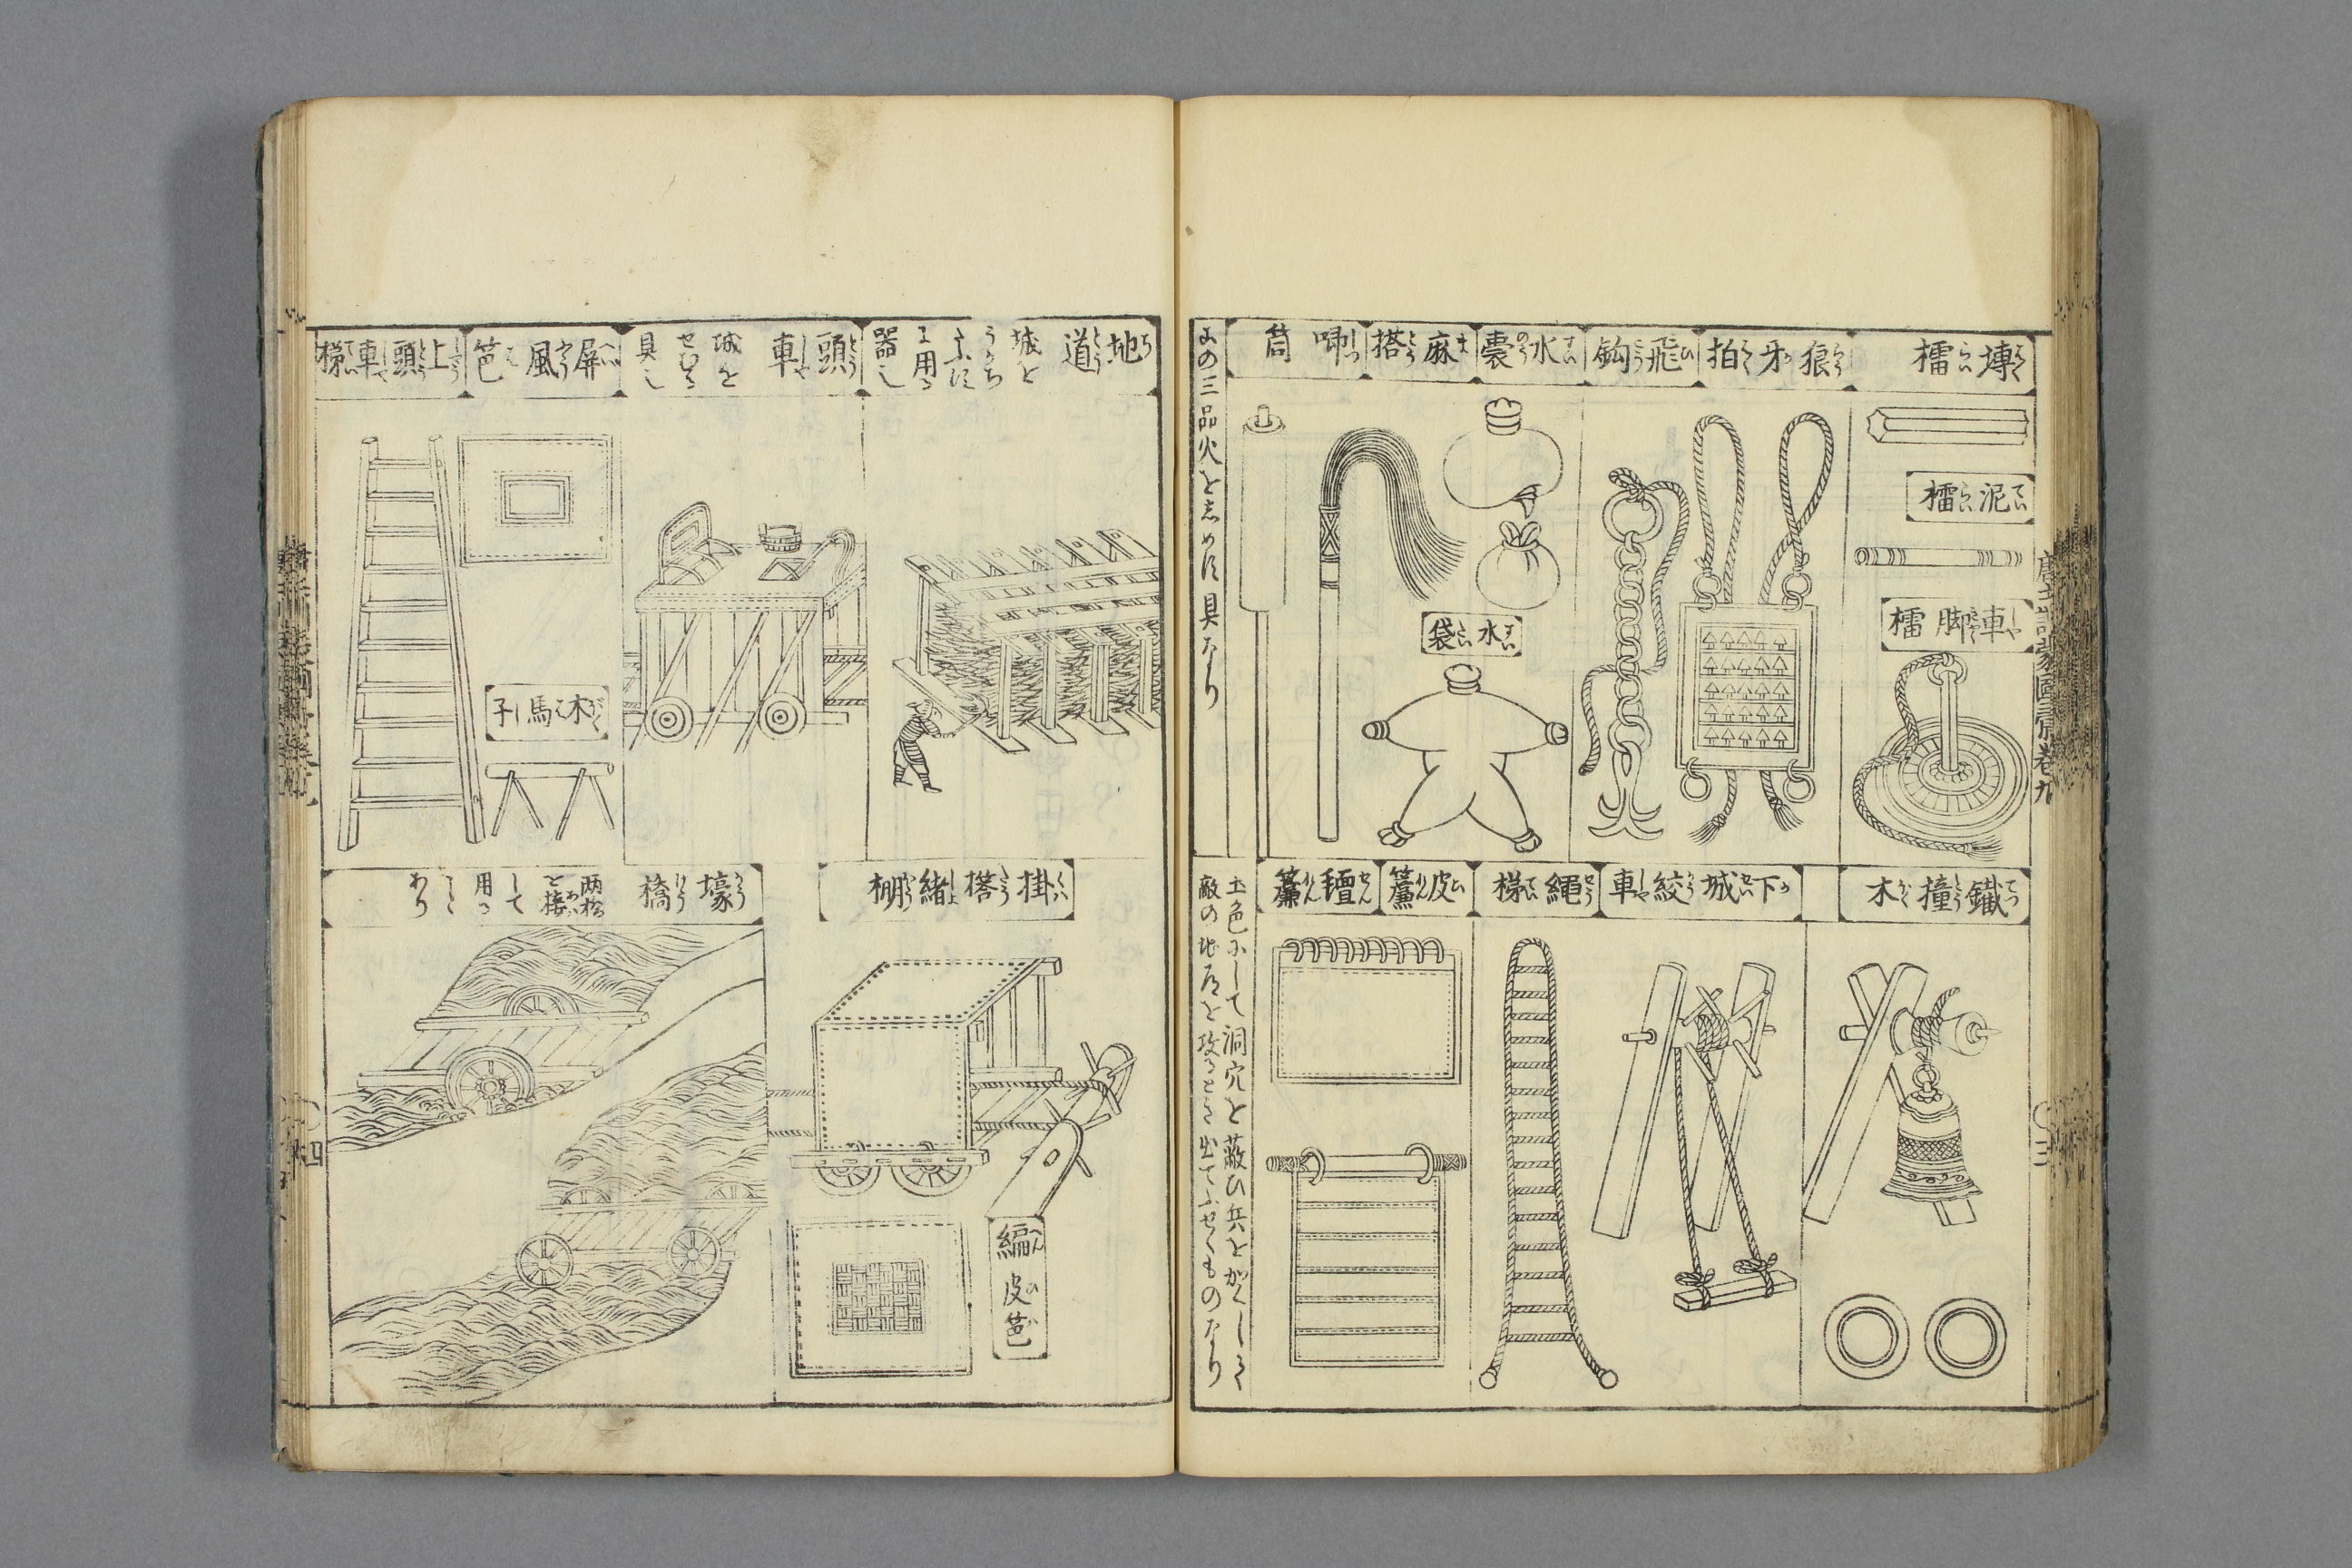 塼檑
泥檑
車脚檑
狼牙拍
飛鈎
水嚢
水袋
麻搭
喞筒
みの三品火をしめす具なり
鐵撞木
下城絞車
繩梯
皮簾
氊簾
土色にして洞穴を蔽ひ兵をかくし
敵の地道を攻るとき出てふせくものなり
唐土訓蒙圖彙卷九
三
地道
城を
うかち
ふに
用る
器也
頭車
城を
せむる
具也
屏風笆
木馬子
上頭車梯
掛搭緒棚
編皮笆
壕橋
両橋
を接
して
用る
こと
あり
四